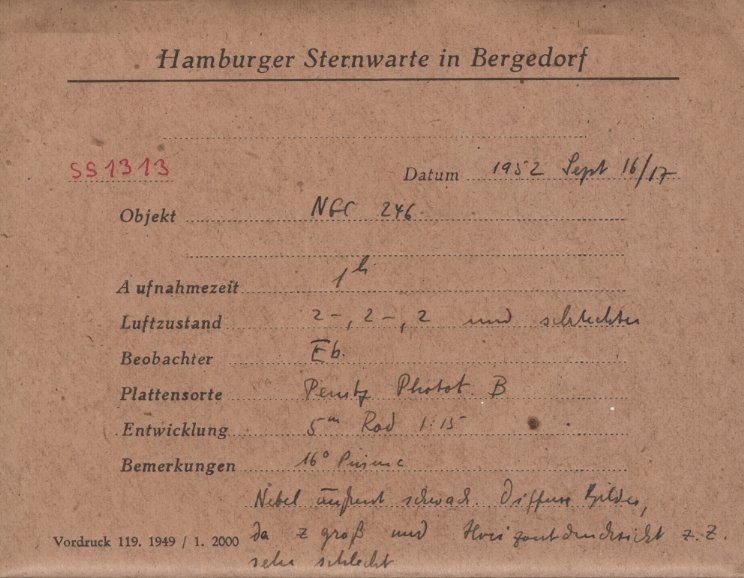 Hamburger Sternwarte in Bergedorf
SS1313
Datum 1952 Sept 16/17
Objekt NGC 246
Aufnahmezeit 1h
Luftzustand 2-, 2-, 2 und schlechter
Beobachter Eb.
Plattensorte Perutz Photot. B
Entwicklung 5m Rod 1:15
Bemerkungen 16°
Nebel äußerst schwach. Diffuse Bilder,
da z groß und Horizontdurchsicht z.Z.
Vordruck 119. 1949 / 1. 2000
sehr schlecht